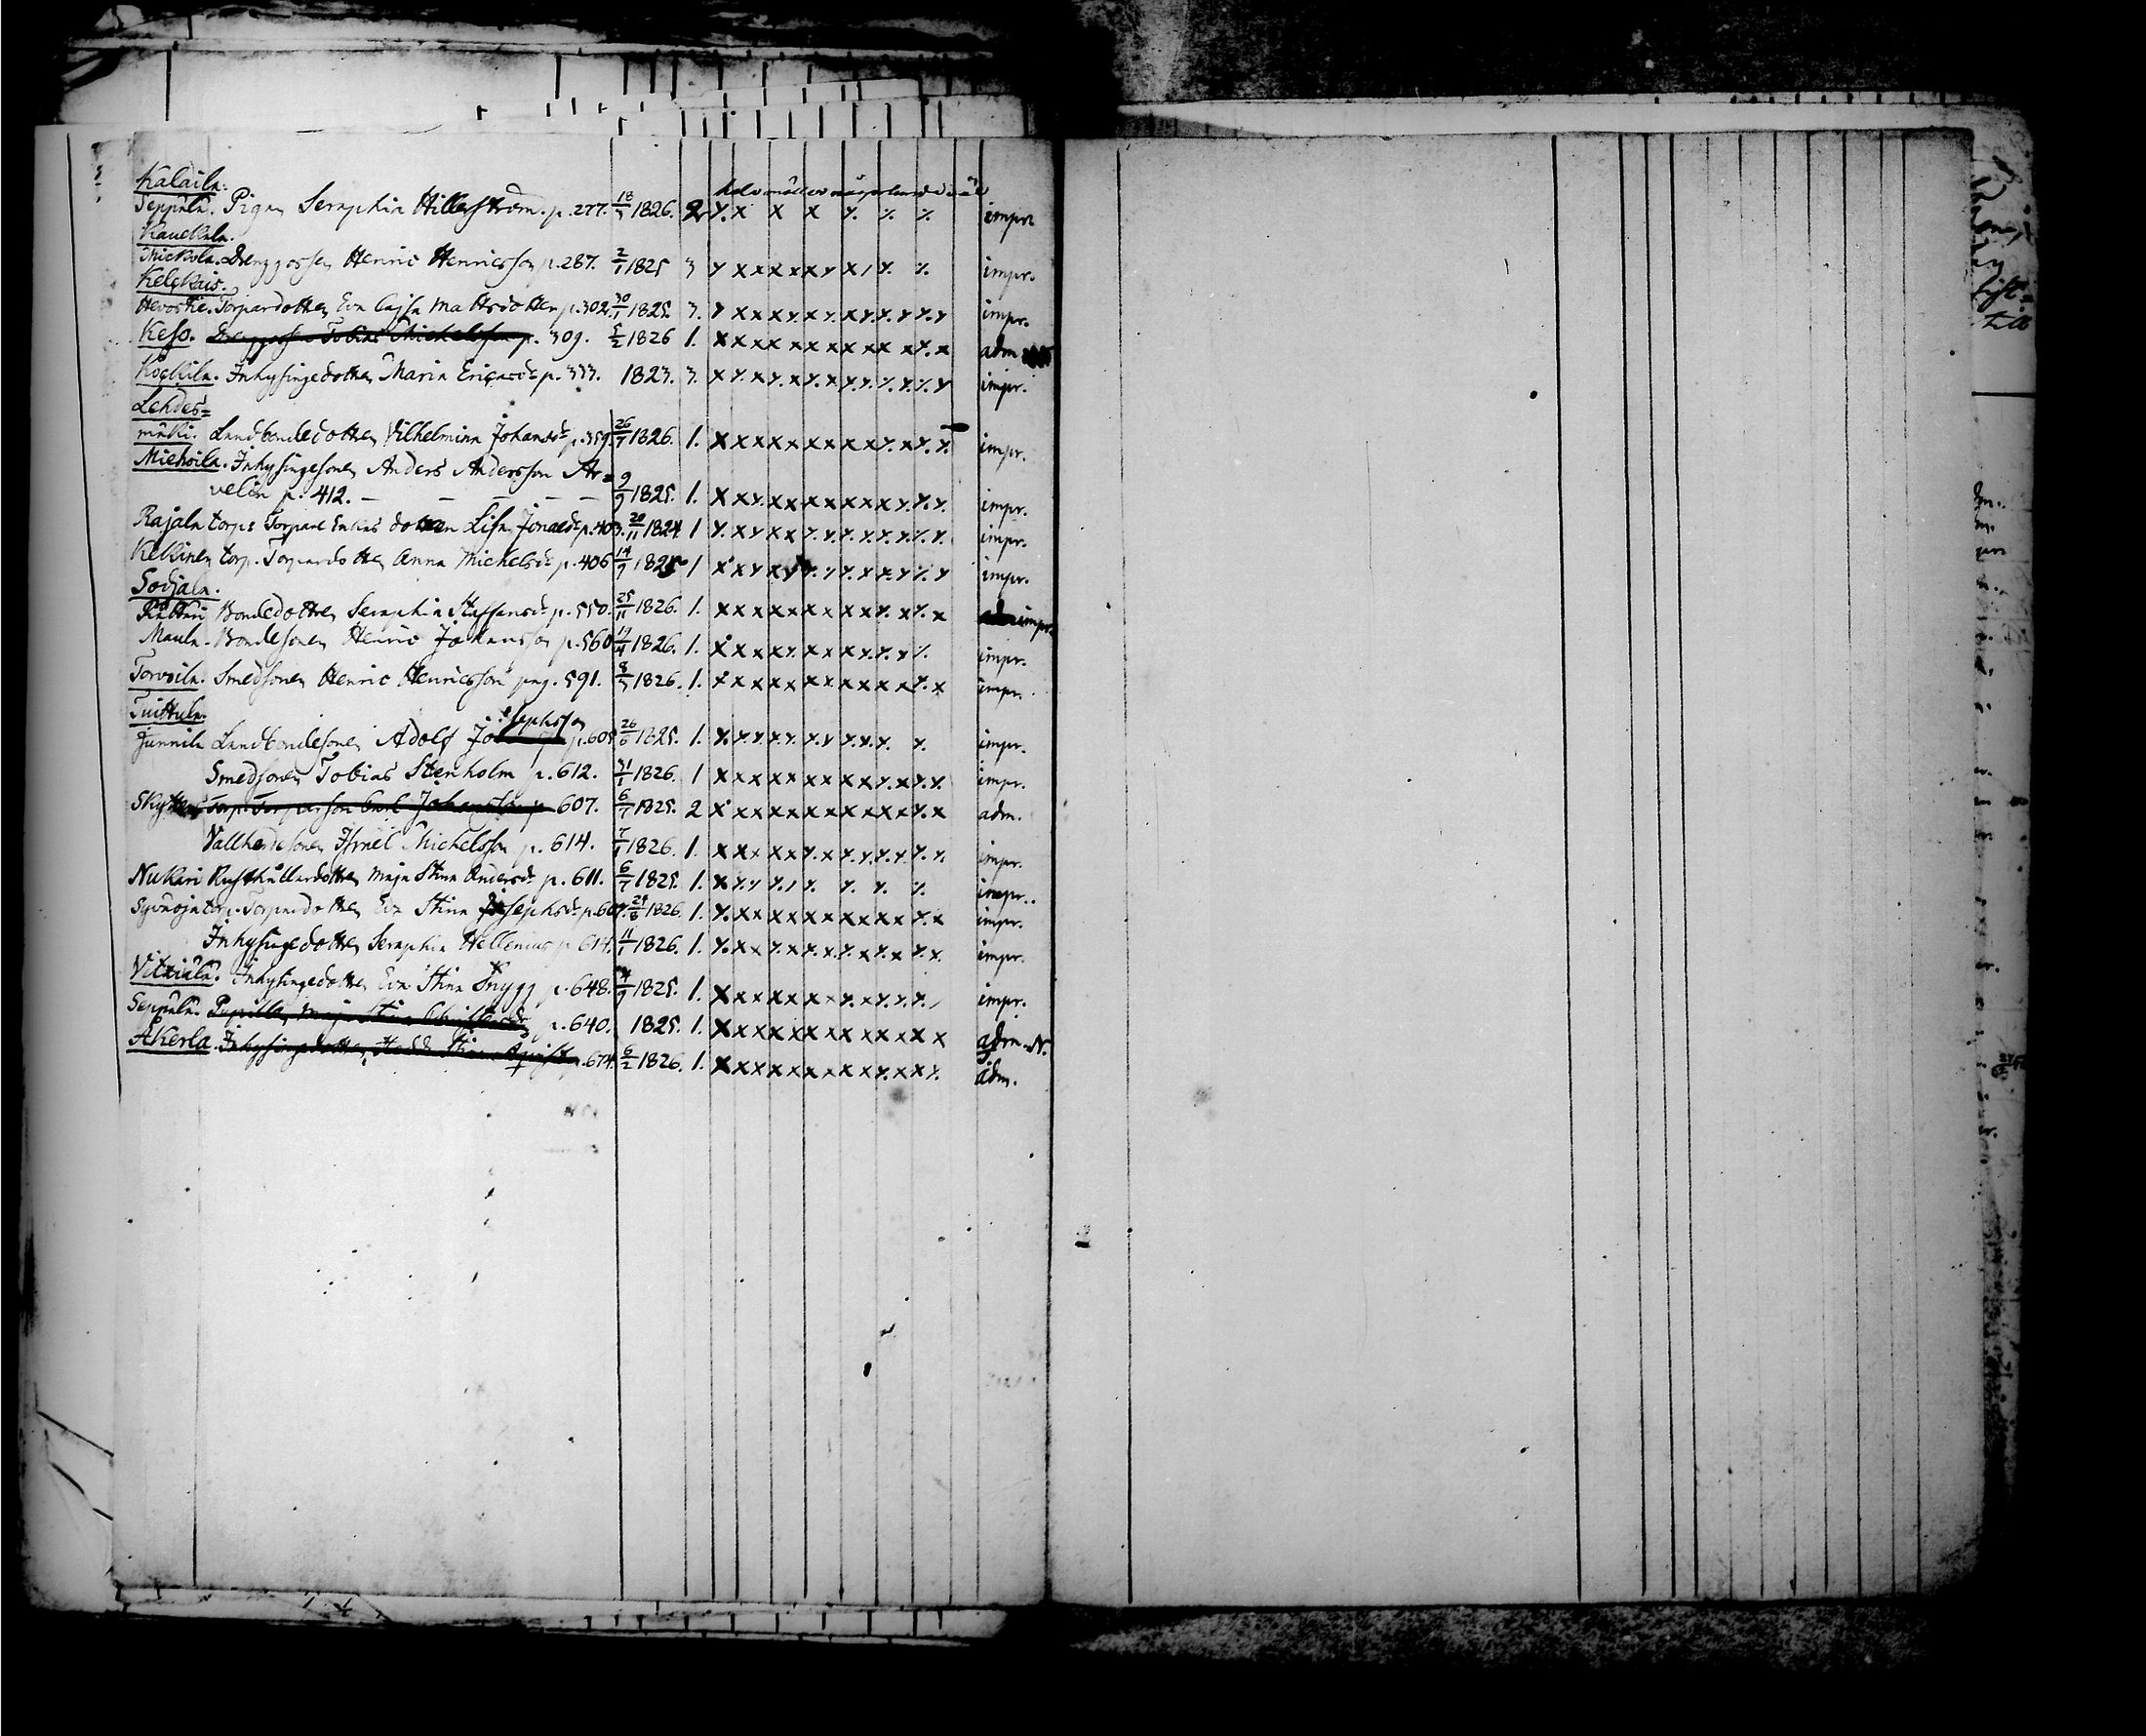 Kalaila.
Seppälä. Pigan Seraphia Hillerström. p. 277. 18/3 1826. 2 x x x x x x x impr.
Kauckola.
Mickola. Drenggossen Henric Henricsson p. 287. 2/1 1825 3 x x x x x x x x x impr.
Kelckais.
Hevoskie. Torpardottren Eva Cajsa Mattsdotter p. 302. 30/1 1825. 3. x x x x x x x x x x x x impr.
Keso. Drenggossen Tobias Michelsson p. 309. 5/2 1826 1. x x x x x x x x x x x x adm.
Kockila. Inhysingedottren Maria Ericsdr p. 333. 1823. 3. x x x x x x x x x x x x impr.
Lehdes=
mäki. Landbondedottren Vilhelmina Johansdr p. 359. 26/7 1826. 1. x x x x x x x x x x x x impr.
Miehoila. Inhysingesonen Anders Andersson Ar=
velin p. 412. — — — — — 9/9 1825. 1. x x x x x x x x x x x x impr.
Rajala torp: Torpare Enkas dottren Lisa Jonaedr p. 403. 20/11 1824 1 x x x x x x x x x x x x impr.
Kekkinen torp. Torpardottren Anna Michelsdr p. 406 14/9 1825 1 x x x x x x x x x x x x impr.
Sodjala.
Rättäri Bondedottren Seraphia Staffansdr p. 550. 25/11 1826. 1. x x x x x x x x x x x x impr.
Maula. Bondesonen Henric Johansson p. 560 19/4 1826. 1. x x x x x x x x x x x impr.
Torvoila. Smedsonen Henric Henricsson pag. 591. 8/3 1826. 1. x x x x x x x x x x x x impr.
Tuittula.
Junnila Landbondesonen Adolf Josephsson p. 605 26/6 1825. 1. x x x x x x x x x x x impr.
Smedsonen Tobias Stenholm p. 612. 31/1 1826. 1 x x x x x x x x x x x x impr.
Skytten Torp. Torparson Carl Johansson p. 607. 6/7 1825. 2 x x x x x x x x x x x x adm.
Vallherdesonen Israel Michelsson p. 614. 7/1 1826. 1. x x x x x x x x x x x x impr.
Nukari Rusthållardottren Maja Stina Andersdr p. 611. 6/7 1825. 1. x x x x x x x x x impr.
torp. Torpardottren Eva Stina Josephsdr p. 607. 29/8 1826. 1. x x x x x x x x x x x x impr.
Inhysingedottren Seraphia Hellenius p. 614. 11/1 1826. 1. x x x x x x x x x x x x impr.
Vitziälä. Inhysingedottren Eva Stina Snygg p. 648. 4/9 1825. 1. x x x x x x x x x x x impr.
Seppälä. Pupillen Maja Stina p. 640. 1825. 1. x x x x x x x x x x x x adm. N.
Åkerla. Inhysingedottren Hedda Stina p. 674. 6/2 1826. 1. x x x x x x x x x x x x adm.